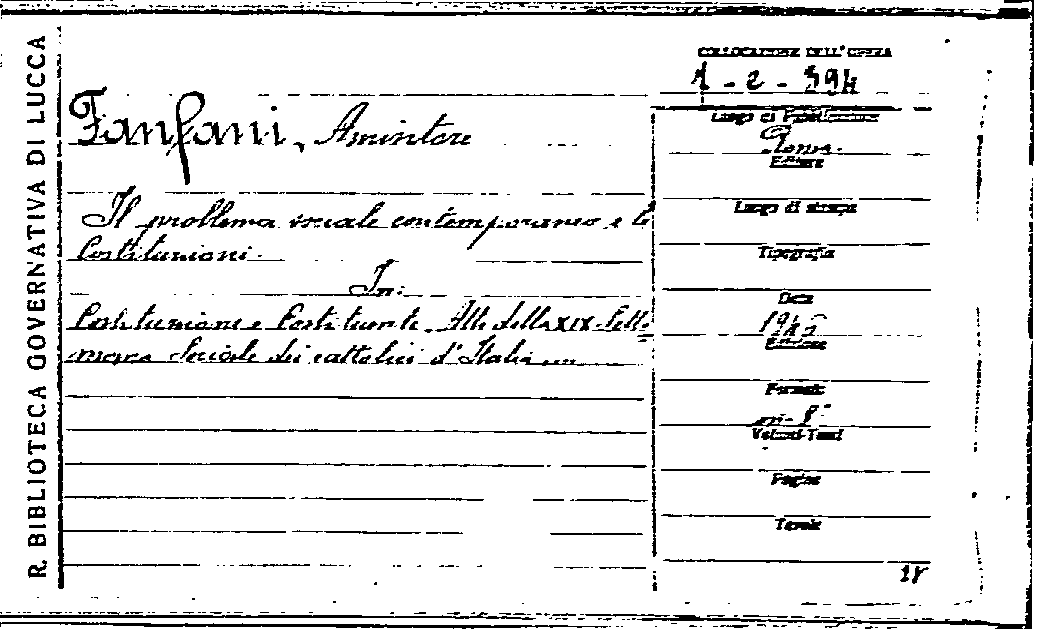 R. BIBLIOTECA GOVERNATIVA DI LUCCA
COLLOCAZIONE DELL'OPERA
1 - 2 - 394
Fanfani, Amintore
Il problema sociale contemporaneo e le
Costituzioni.
In:
Costituzione e Costituente. Atti della XIX Setti
mana Sociale dei cattolici d'Italia ....
Luogo di Pubblicazione
Roma.
Editore
Luogo di stampa
Tipografia
Data
Edizione
Formato
in-8°
Volumi-Tomi
Pagine
Tavole